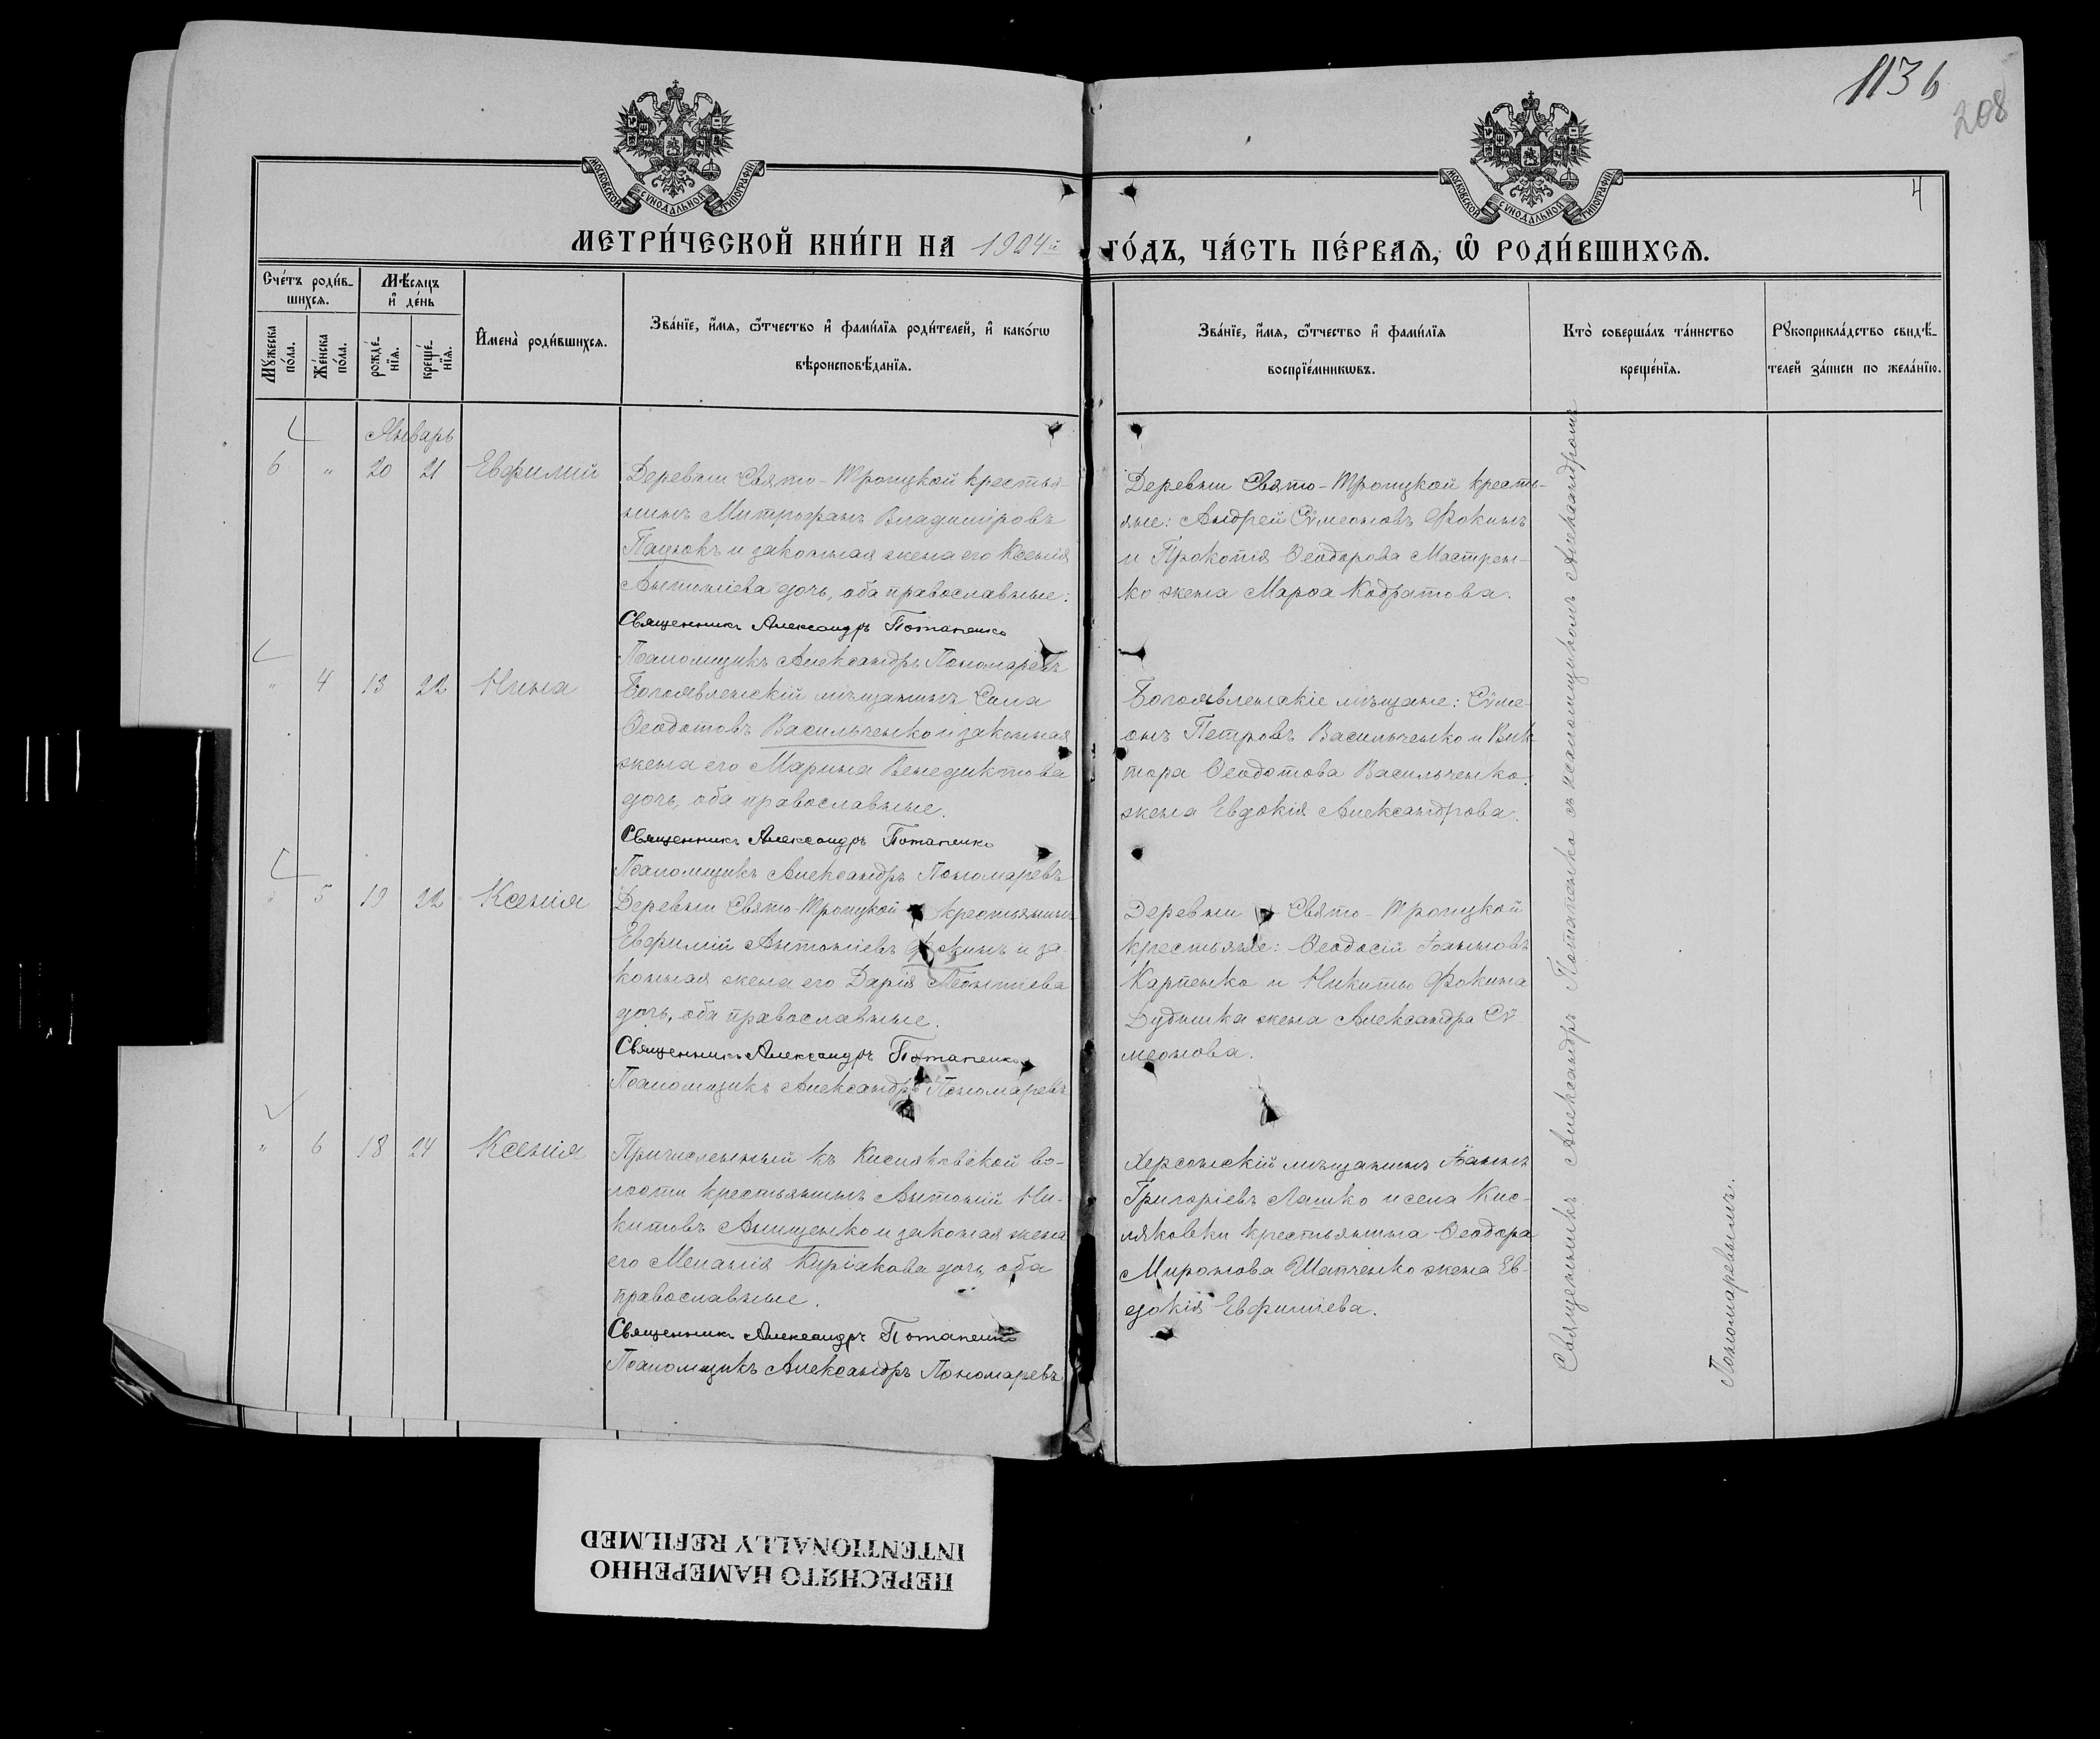 1136
208
4
МОСКОВСКОЙ СѴНОДАЛЬНОЙ ТИПОГРАФІИ
МОСКОВСКОЙ СѴНОДАЛЬНОЙ ТИПОГРАФІИ
МЕТРИ́ЧЕСКОЙ КНИ́ГИ НА 1904й ГО́ДЪ, ЧА́СТЬ ПЕ́РВАѦ, Ѡ РОДИ́ВШИХСѦ.
Сче́тъ роди́в-
шихсѧ.
Мѣ́сѧцъ
и де́нь
Мꙋ́жеска
по́ла.
Же́нска
по́ла.
рожде́-
нїѧ.
креще́-
нїѧ.
И҆мена̀ роди́вшихсѧ.
Зва́нїе, и҆́мѧ, ѻ҆́тчество и҆ фами́лїѧ роди́телей, и҆ како́гѡ
вѣроисповѣ́данїѧ.
Зва́нїе, и҆́мѧ, ѻ҆́тчество и҆ фами́лїѧ
воспрїе́мникѡвъ.
Кто̀ соверша́лъ та́инство
креще́нїѧ.
Рꙋкоприкла́дство свидѣ́-
телей за́писи по жела́нїю.
Январь
6 " 20 21 Евфимій
Деревни Свято-Троицкой крестья-
нинъ Митрофанъ Владиміровъ
Пацюкъ и законная жена его Ксенія
Антоніева дочь, оба православные.
Священникъ Александръ Потапенко
Псаломщикъ Александръ Пономаревъ
Деревни Свято-Троицкой кресть-
яне: Андрей Сѵмеоновъ Фокинъ
и Прокопія Ѳеодорова Мастрен-
ко жена Марѳа Кодратова.
" 4 13 22 Нина
Богоявленскій мѣщанинъ Сила
Ѳеодотовъ Васильченко и законная
жена его Марина Венедиктова
дочь, оба православные.
Священникъ Александръ Потапенко
Псаломщикъ Александръ Пономаревъ
Богоявленскіе мѣщане: Сѵме-
онъ Петровъ Васильченко и Вик-
тора Ѳеодотова Васильченко
жена Евдокія Александрова.
" 5 19 22 Ксенія
Деревни Свято-Троицкой крестьянинъ
Евфимій Антоніевъ Фокинъ и за-
конная жена его Дарія Леонтіева
дочь, оба православные.
Священникъ Александръ Потапенко
Псаломщикъ Александръ Пономаревъ
Деревни Свято-Троицкой
крестьяне: Ѳеодосій Іоанновъ
Карпенко и Никиты Фокина
Дудника жена Александра Сѵ
меонова.
" 6 18 24 Ксенія
Причисленный къ Кисляковской во-
лости крестьянинъ Антоній Ни-
китовъ Анищенко и законая жена
его Меланія Киріакова дочь, оба
православные.
Священникъ Александръ Потапенко
Псаломщикъ Александръ Пономаревъ
Херсонскій мѣщанинъ Іоаннъ
Григоріевъ Лашко и села Кис-
ляковки крестьянина Ѳеодора
Миронова Шевченко жена Ев-
докія Евфиміева.
Священникъ Александръ Потапенко съ псаломщикомъ Александромъ
Пономаревымъ.
ПЕРЕСНЯТО НАМЕРЕННО
INTENTIONALLY REFILMED